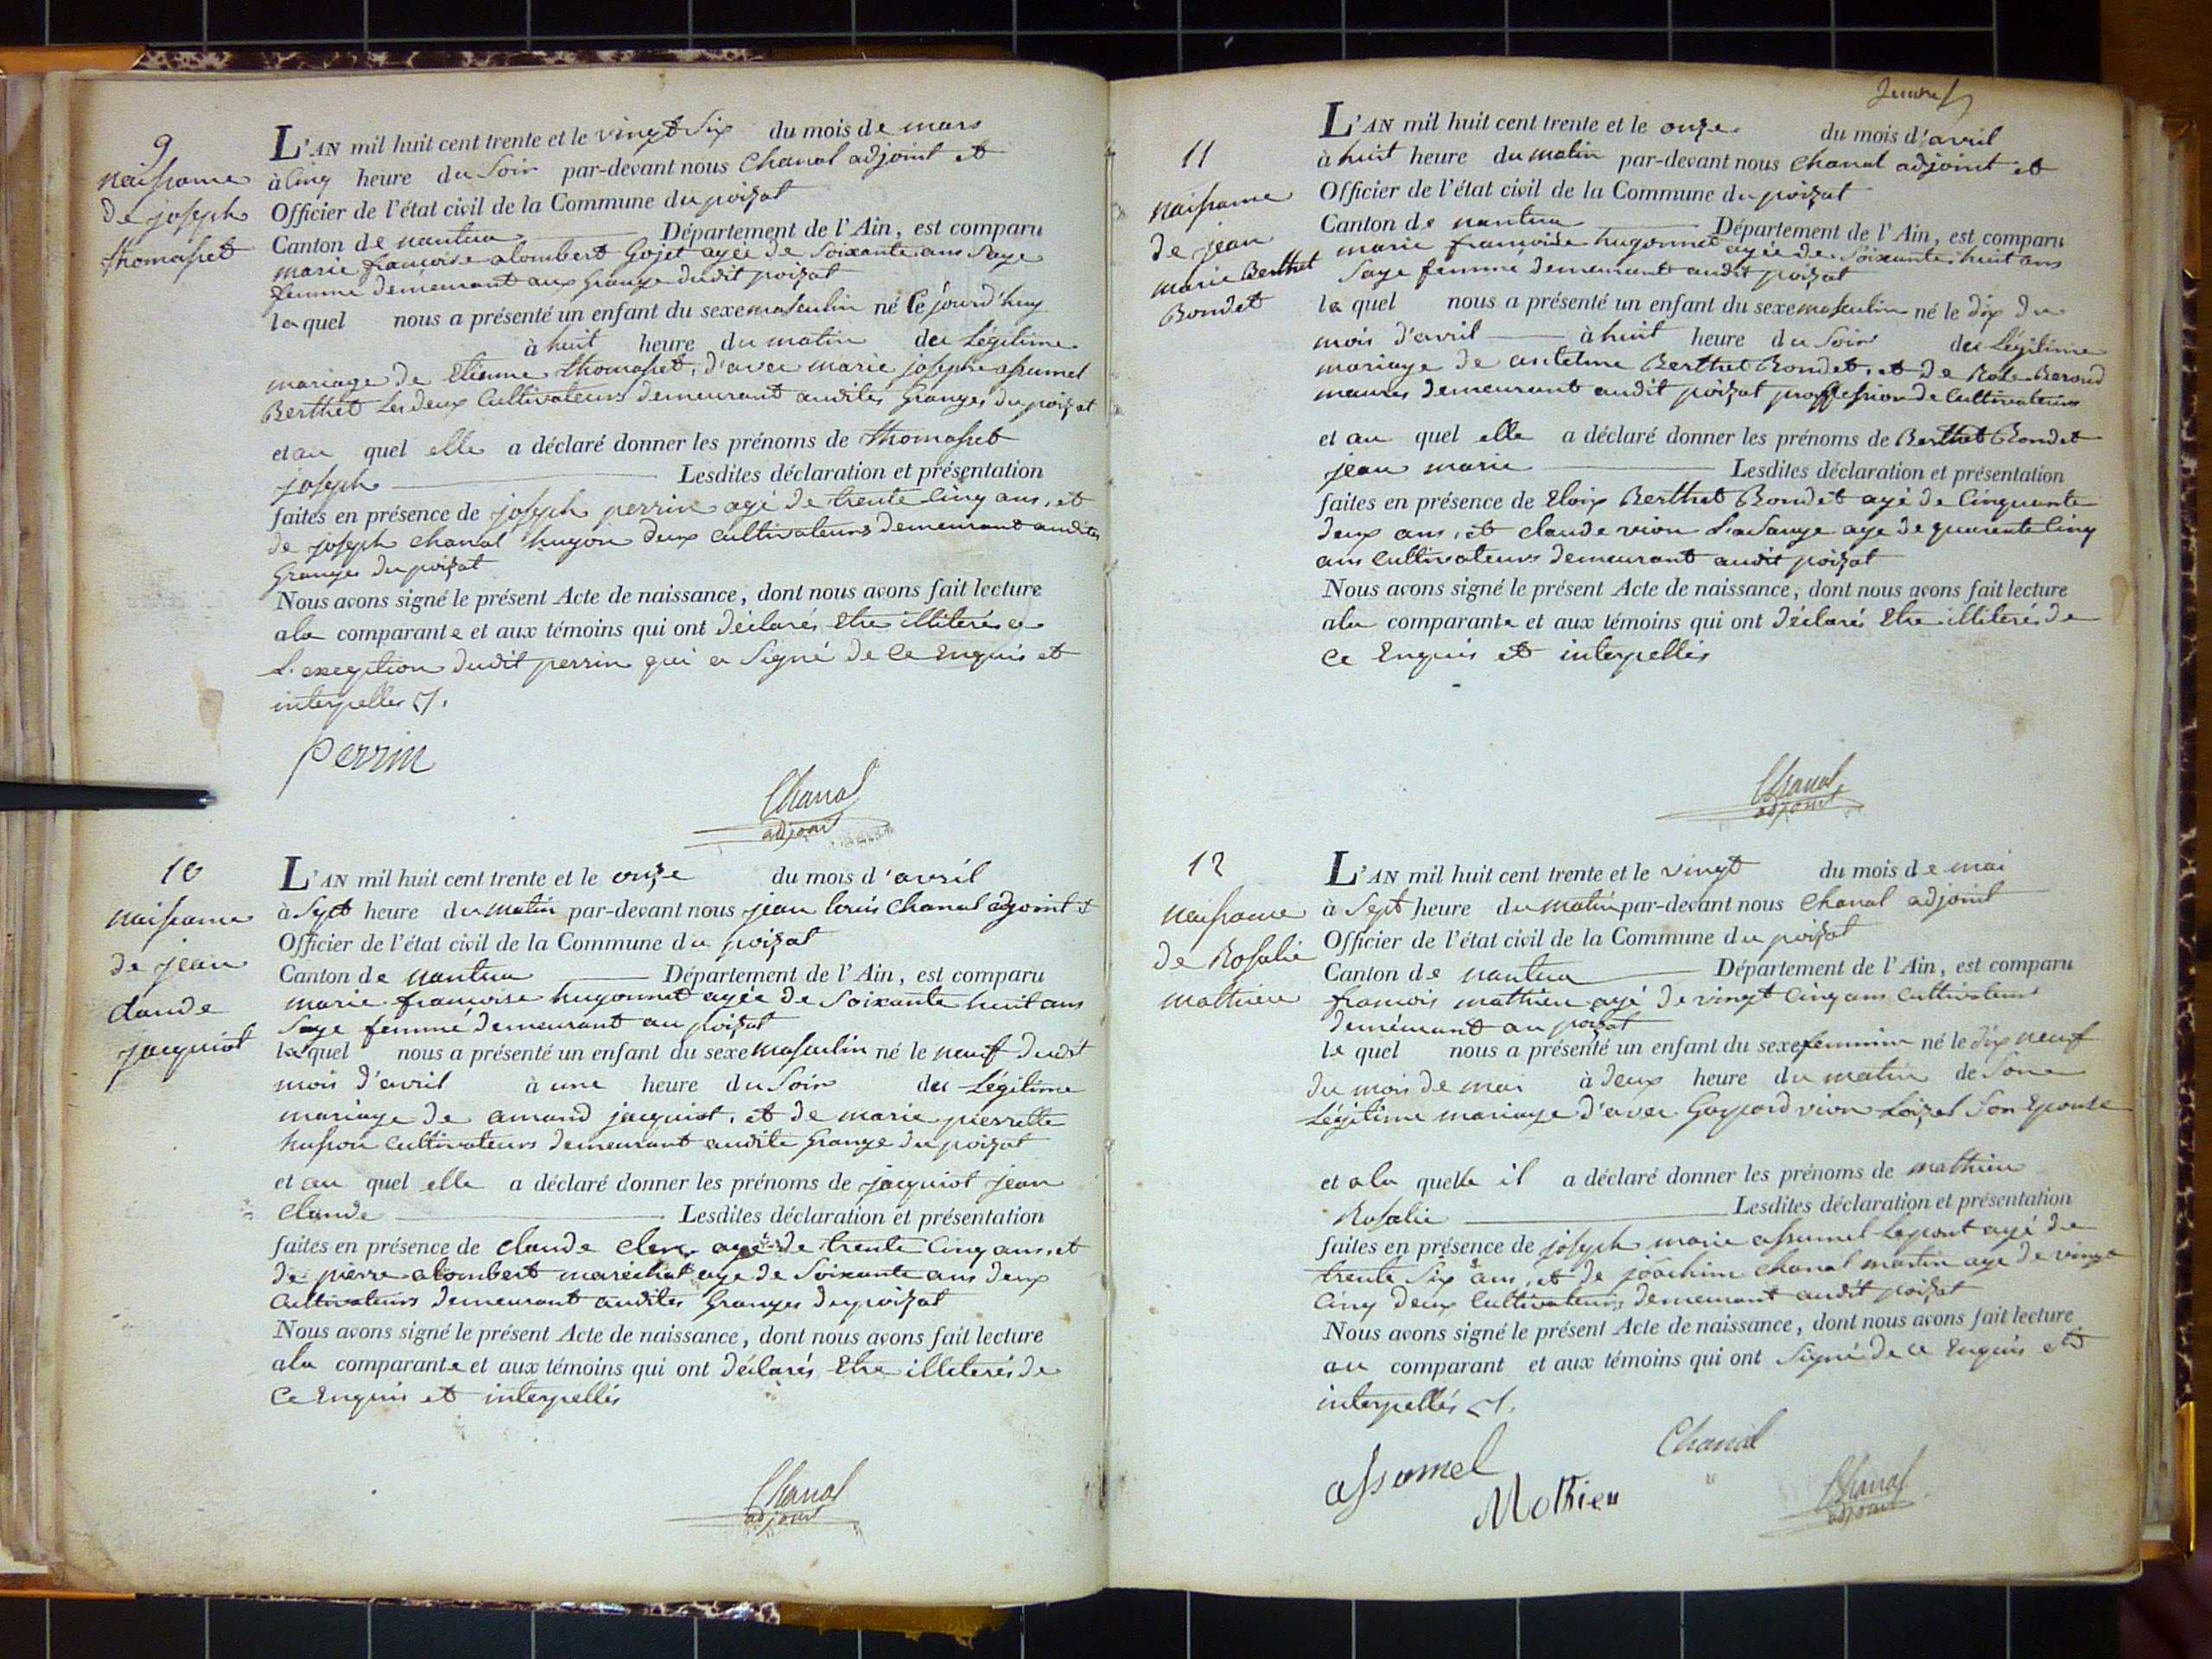 9
naissance
de joseph
thomasset
L'AN mil huit cent trente et le vingt Six du mois de mars
à Cinq heure du Soir par-devant nous Chanal adjoint et
Officier de l'état civil de la Commune du poizat
Canton de nantua Département de l'Ain, est comparu
marie françoise alombert Gojet agée de Soixante ans Sage
femme demeurant aux Grange dudit poizat
laquel nous a présenté un enfant du sexe masculin né le jourd'huy
à huit heure du matin du Légitime
mariage de Etienne thomasset, d'avec marie josephe assumel
Berthet Les deux Cultivateurs demeurant audites Granges du poizat
et au quel elle a déclaré donner les prénoms de thomasset
joseph Lesdites déclaration et présentation
faites en présence de joseph perrin agé de trente Cinq ans, et
de joseph Chanal hugon deux Cultivateurs demeurant audites
Granges du poizat
Nous avons signé le présent Acte de naissance, dont nous avons fait lecture
a la comparante et aux témoins qui ont déclarés Etre illiterés a
L'exception dudit perrin qui a Signé de Ce Enquis et
interpelles
perrin
Chanal
adjoint
10
naissance
de jean
claude
jacquiot
L'AN mil huit cent trente et le onze du mois d'avril
à Sept heure du matin par-devant nous jean louis Chanal adjoint et
Officier de l'état civil de la Commune du poizat
Canton de nantua Département de l'Ain, est comparu
marie françoise hugonnet agée de Soixante huit ans
Sage femme demeurant au poizat
laquel nous a présenté un enfant du sexe masculin né le neuf dudit
mois d'avril à une heure du Soir du Légitime
mariage de amand jacquiot, et de marie pierrette
husson Cultivateurs demeurant audite Grange du poizat
et au quel elle a déclaré donner les prénoms de jacquiot jean
Claude Lesdites déclaration et présentation
faites en présence de Claude Clerc agé de trente Cinq ans, et
de pierre alombert maréchal age de Soixante ans deux
Cultivateurs demeurant audites Granges du poizat
Nous avons signé le présent Acte de naissance, dont nous avons fait lecture
a la comparante et aux témoins qui ont déclarés Etre illiterés de
Ce Enquis et interpellés
Chanal
adjoint
11
naissance
de jean
marie Berthet
Bondet
L'AN mil huit cent trente et le onze du mois d'avril
à huit heure du matin par-devant nous Chanal adjoint et
Officier de l'état civil de la Commune du poizat
Canton de nantua Département de l'Ain, est comparu
marie françoise hugonnet agée de Soixante huit ans
Sage femme demeurant audit poizat
la quel nous a présenté un enfant du sexe masculin né le dix du
mois d'avril à huit heure du Soir du Légitime
mariage de antelme Berthet Bondet, et de Rose Beroud
maures demeurant audit poizat proffession de Cultivateurs
et au quel elle a déclaré donner les prénoms de Berthet Bondet
jean marie Lesdites déclaration et présentation
faites en présence de Eloix Berthet Bondet agé de Cinquante
deux ans, et claude vion Lasauge age de quarente Cinq
ans Cultivateurs demeurant audit poizat
Nous avons signé le présent Acte de naissance, dont nous avons fait lecture
a la comparante et aux témoins qui ont déclarés Etre illiterés de
Ce Enquis et interpellés
Chanal
adjoint
12
naissance
de Rosalie
mathieu
L'AN mil huit cent trente et le vingt du mois de mai
à Sept heure du matin par-devant nous Chanal adjoint
Officier de l'état civil de la Commune du poizat
Canton de nantua Département de l'Ain, est comparu
francois mathieu agé de vingt Cinq ans Cultivateur
demeurant au poizat
le quel nous a présenté un enfant du sexe feminin né le dix neuf
du mois de mai à deux heure du matin de Son
Légitime mariage d'avec Gaspard vion Loizel Son Epouse
et a la quelle il a déclaré donner les prénoms de mathieu
Rosalie Lesdites déclaration et présentation
faites en présence de joseph marie assumel Lepont agé de
trente Six ans, et de joachim Chanal martin age de vingt
Cinq deux Cultivateurs demeurant audit poizat
Nous avons signé le présent Acte de naissance, dont nous avons fait lecture
au comparant et aux témoins qui ont Signé de Ce Enquis et
interpellés
assumel
Chanal
Mothieu
Chanal
adjoint